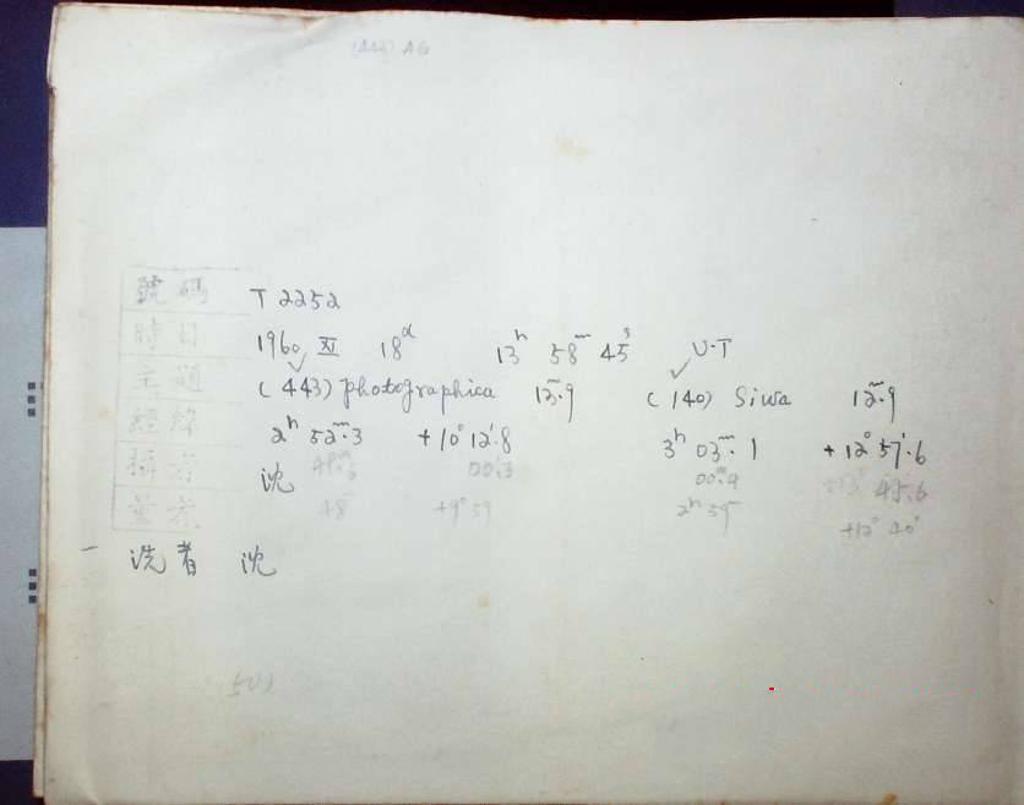 (443) AG
號碼 T 2252
時日 1960 XI 18ᵈ 13ʰ 58ᵐ 45ˢ U·T
主題 (443) photographica 12ᵐ.9 (140) Siwa 12ᵐ.9
經緯 2ʰ 52ᵐ.3 +10° 12'.8 3ʰ 03ᵐ.1 +12° 57'.6
攝者 沈 49ᵐ 00'.3 00ᵐ.9 45.6
48ᵐ +9° 59 2ʰ 59ᵐ
+12° 40'
洗者 沈